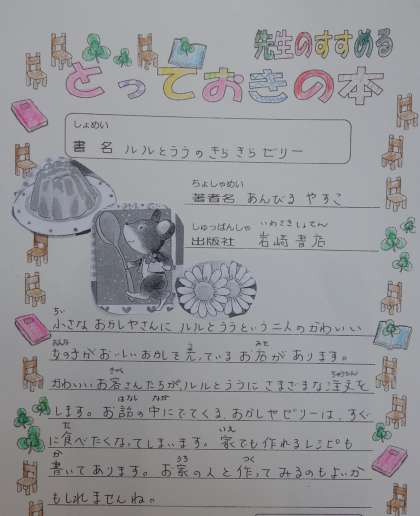 先生のすすめる
とっておきの本
しょめい
書名 ルルとララのきらきらゼリー
ちょしゃめい
著者名 あんびる やすこ
しゅっぱんしゃ いわさきしょてん
出版社 岩崎書店
ちい
小さな おかしやさんに ルルとララという二人のかわいい
おんな う みせ
女のきがおいしいおかしを売っているお店があります。
きゃく ちゅうもん
かわいいお客さんたちが、ルルとララに さまざまな注文を
はなし なか
します。お話の中にでてくる、おかしやゼリーは、すぐ
た いえ
に食べたくなってしまいます。家でも作れるレシピも
か うち つく
書いてあります。お家の人と作ってみるのもよいか
もしれませんね。